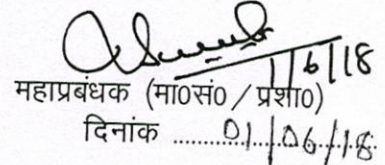 1/6/18
महाप्रबंधक (मा0सं0 / प्रशा0)
दिनांक ........01/06/18........